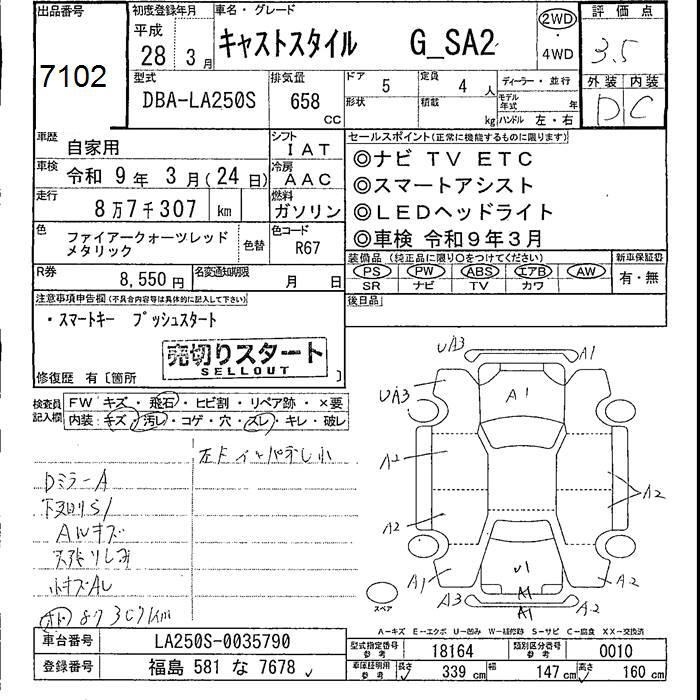 出品番号
7102
初度登録年月
平成
28 3 月
車名・グレード
キャストスタイル G_SA2
2WD
・
4WD
評価点
3.5
外装 内装
D C
型式
DBA-LA250S
排気量
658
CC
ドア 5 定員 4 人
形状 積載 kg
ディーラー・並行
モデル年式 年
ハンドル 左・右
車歴 自家用
シフト IAT
車検 令和 9 年 3 月(24 日)
冷房 AAC
走行 8 万 7 千 307 km
燃料 ガソリン
色 ファイアークォーツレッド
メタリック
色替
色コード R67
R券 8,550 円
名変通知期限 月 日
セールスポイント(正常に機能するものに限ります)
◎ナビ TV ETC
◎スマートアシスト
◎LEDヘッドライト
◎車検 令和9年3月
装備品 (純正品に限り○をつけてください)
PS PW ABS エアB AW
SR ナビ TV カワ
新車保証書
有・無
後日品
注意事項申告欄(不具合内容等は具体的に記入して下さい)
・スマートキー プッシュスタート
売切りスタート
SELLOUT
修復歴 有〔箇所 〕
検査員
記入欄
FW キズ・飛石・ヒビ割・リペア跡・×要
内装:キズ・汚し・コゲ・穴・スレ・キレ・破レ
Dミラ-A
Aルキズ
小キズAL
87307km
UA3
A1
UA3
A1
A2
A2
A2
A1
U1
A2
A3
A1
A1
スペア
A-キズ E-エクボ U-凹み W-補修跡 S-サビ C-腐食 XX-交換済
車台番号 LA250S-0035790
登録番号 福島 581 な 7678
型式指定番号
参考
18164
類別区分番号
参考
0010
車庫証明用
参考
長さ 339 cm 幅 147 cm 高さ 160 cm